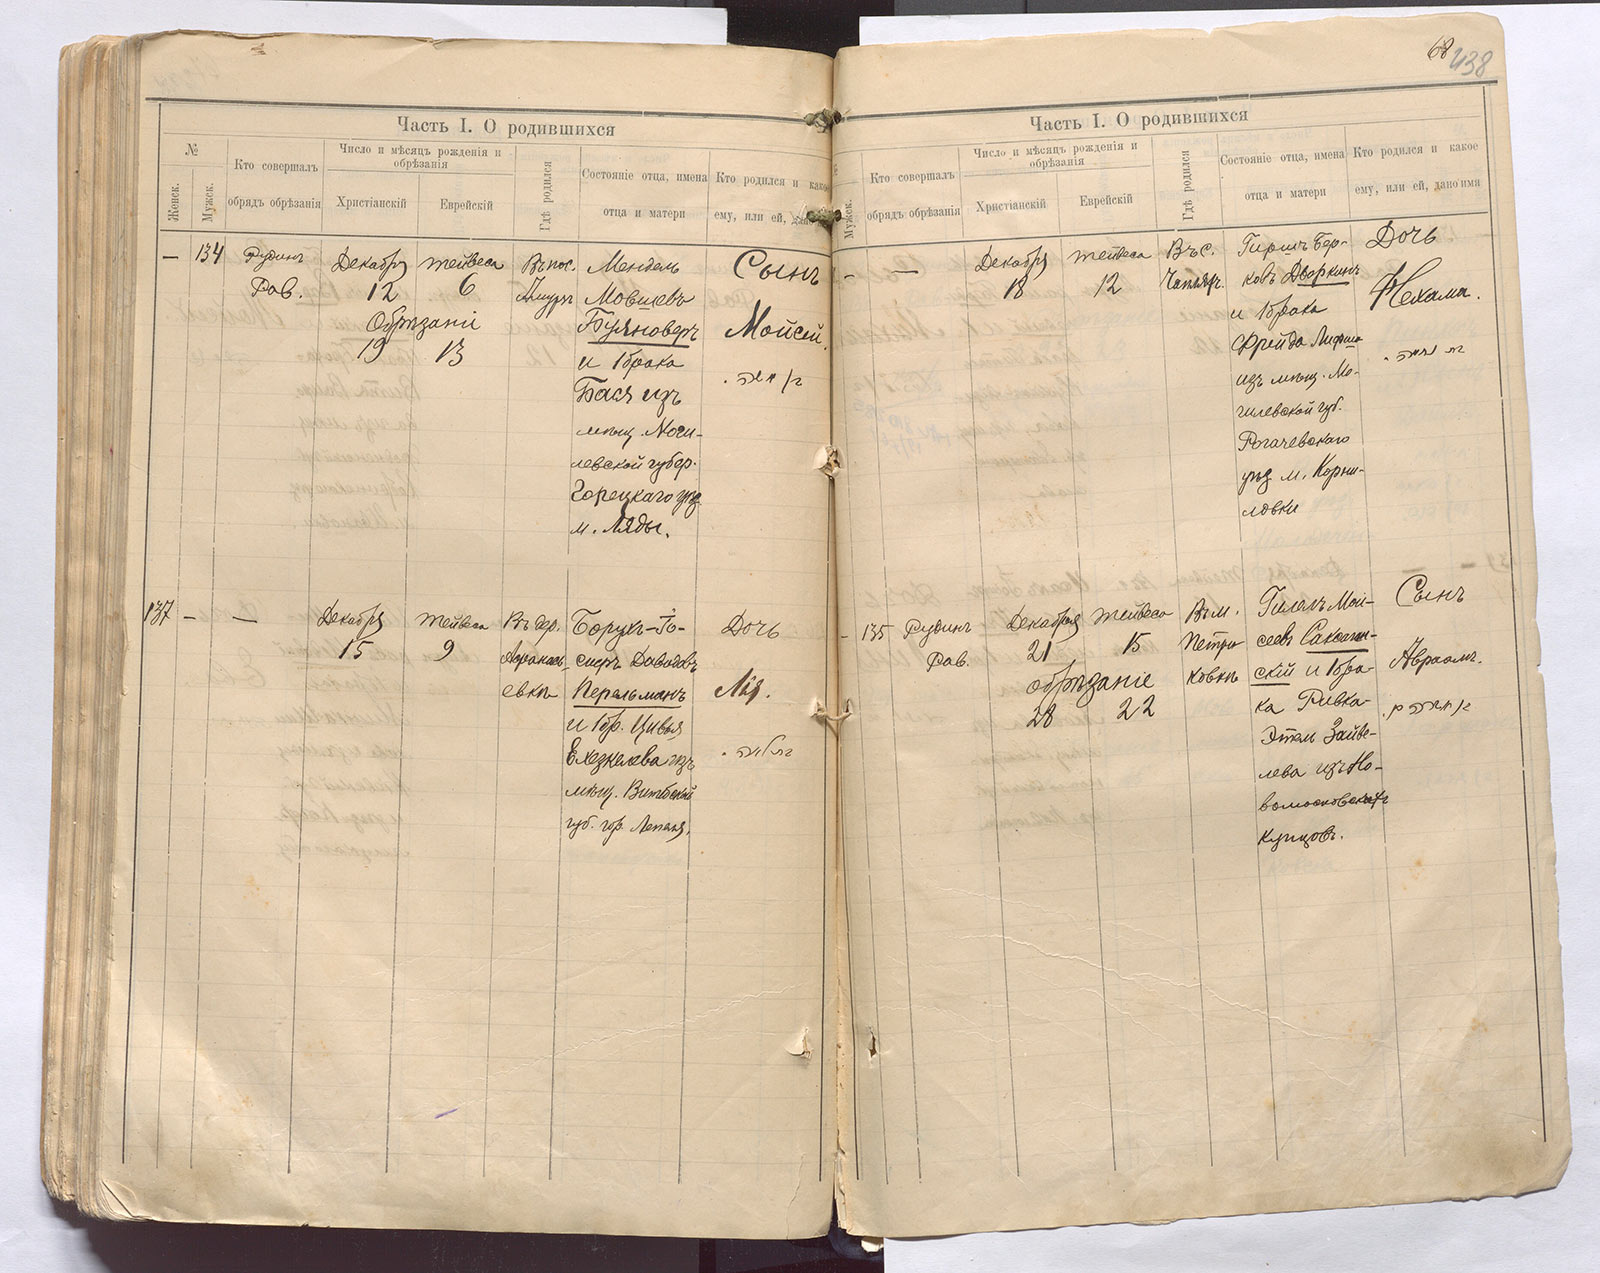 Часть I. О родившихся
№
Женск.
Мужск.
Кто совершалъ
обрядъ обрѣзанія
Число и мѣсяцъ рожденія и
обрѣзанія
Христіанскій
Еврейскій
Гдѣ родился
Состояніе отца, имена
отца и матери
Кто родился и како
ему, или ей, дано
— 134
Рудинъ
Рав.
Декабря
12
Тейвеса
6
Обрѣзаніе
19 13
Въ пос.
Амуръ
Мендель
Мовшевъ
Буяноверъ
и 1 брака
Бася изъ
мѣщ. Моги-
левской губер.
Горецкаго уѣз.
м. Ляды.
Сынъ
Мойсей.
137 —
—
Декабря
15
Тейвеса
9
Въ дер.
Афанась-
евкѣ
Борухъ-Іо-
сифъ Давидовъ
Перельманъ
и 1 бр. Цивья
Ехезкелева изъ
мѣщ. Витебской
губ. гор. Лепеля.
Дочь
Лія.
68 438
Часть I. О родившихся
Мужск.
Кто совершалъ
обрядъ обрѣзанія
Число и мѣсяцъ рожденія и
обрѣзанія
Христіанскій
Еврейскій
Гдѣ родился
Состояніе отца, имена
отца и матери
Кто родился и какое
ему, или ей, дано ими
—
—
Декабря
18
Тейвеса
12
Въ с.
Гиршъ Бер-
ковъ Дворкинъ
и 1 брака
Фрейда
изъ мѣщ. Мо-
гилевской губ.
Рогачевскаго
уѣз. м. Корни-
ловки
Дочь
Нехама.
— 135
Рудинъ
Рав.
Декабря
21
Тейвеса
15
обрѣзаніе
28 22
Въ м.
Петри-
ковкѣ
Гилель Мой-
сеевъ
скій и 1 бра-
ка Ривка-
Этель Зайве-
лева изъ Но-
вомосковскихъ
купцовъ.
Сынъ
Авраамъ.